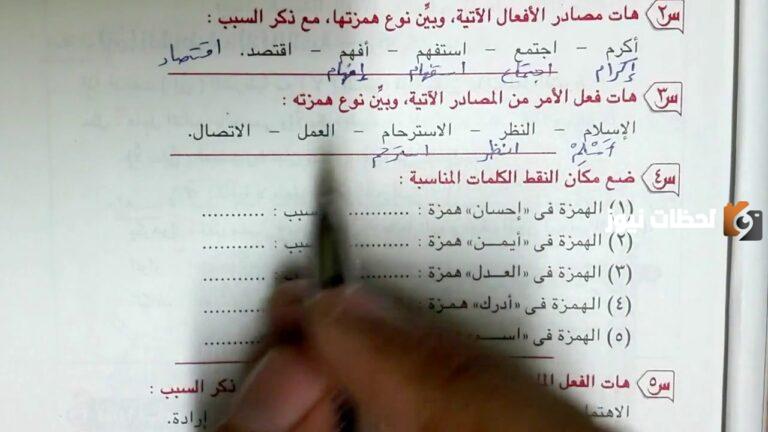 س٢ هات مصادر الأفعال الآتية، وبيِّن نوع همزتها، مع ذكر السبب :
أكرم – اجتمع – استفهم – أفهم – اقتصد. اقتصاد
إكرام اجتماع استفهام إفهام
س٣ هات فعل الأمر من المصادر الآتية، وبيِّن نوع همزته :
الإسلام – النظر – الاسترحام – العمل – الاتصال.
أسْلِمْ انظر استرحم
س٤ ضع مكان النقط الكلمات المناسبة :
(١) الهمزة فى «إحسان» همزة : ........... لسبب : ...........
(٢) الهمزة فى «أيمـن» همزة : ........... سبب : ...........
(٣) الهمزة فى «العـدل» همزة : ........... ...........
(٤) الهمزة فى «أدرك» همزة : ...........
(٥) الهمزة فى ...........
لحظات نيوز
س٥ هات الفعل ذكر السبب :
إرادة.